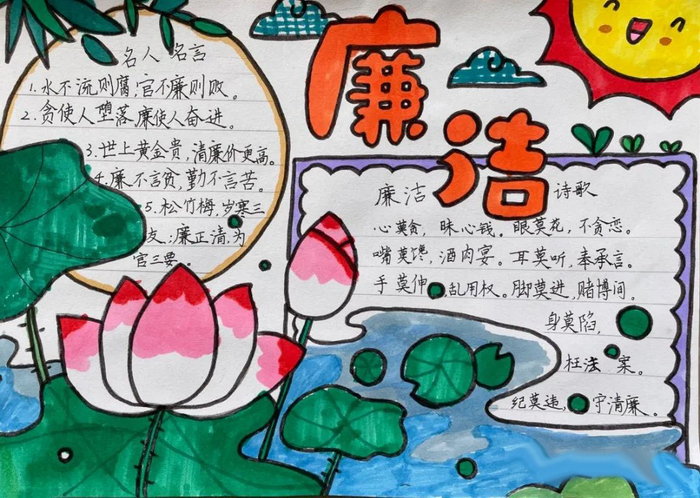 廉洁
名人名言
1.水不流则腐,官不廉则败。
2.贪使人堕落,廉使人奋进。
3.世上黄金贵,清廉价更高。
4.廉不言贫,勤不言苦。
5.松竹梅,岁寒三
友;廉正清,为
官三要。
廉洁 诗歌
心莫贪,昧心钱。眼莫花,不贪恋。
嘴莫馋,酒肉宴。耳莫听,奉承言。
手莫伸,乱用权。脚莫进,赌博间。
身莫陷,
枉法 案。
纪莫违, 守清廉。